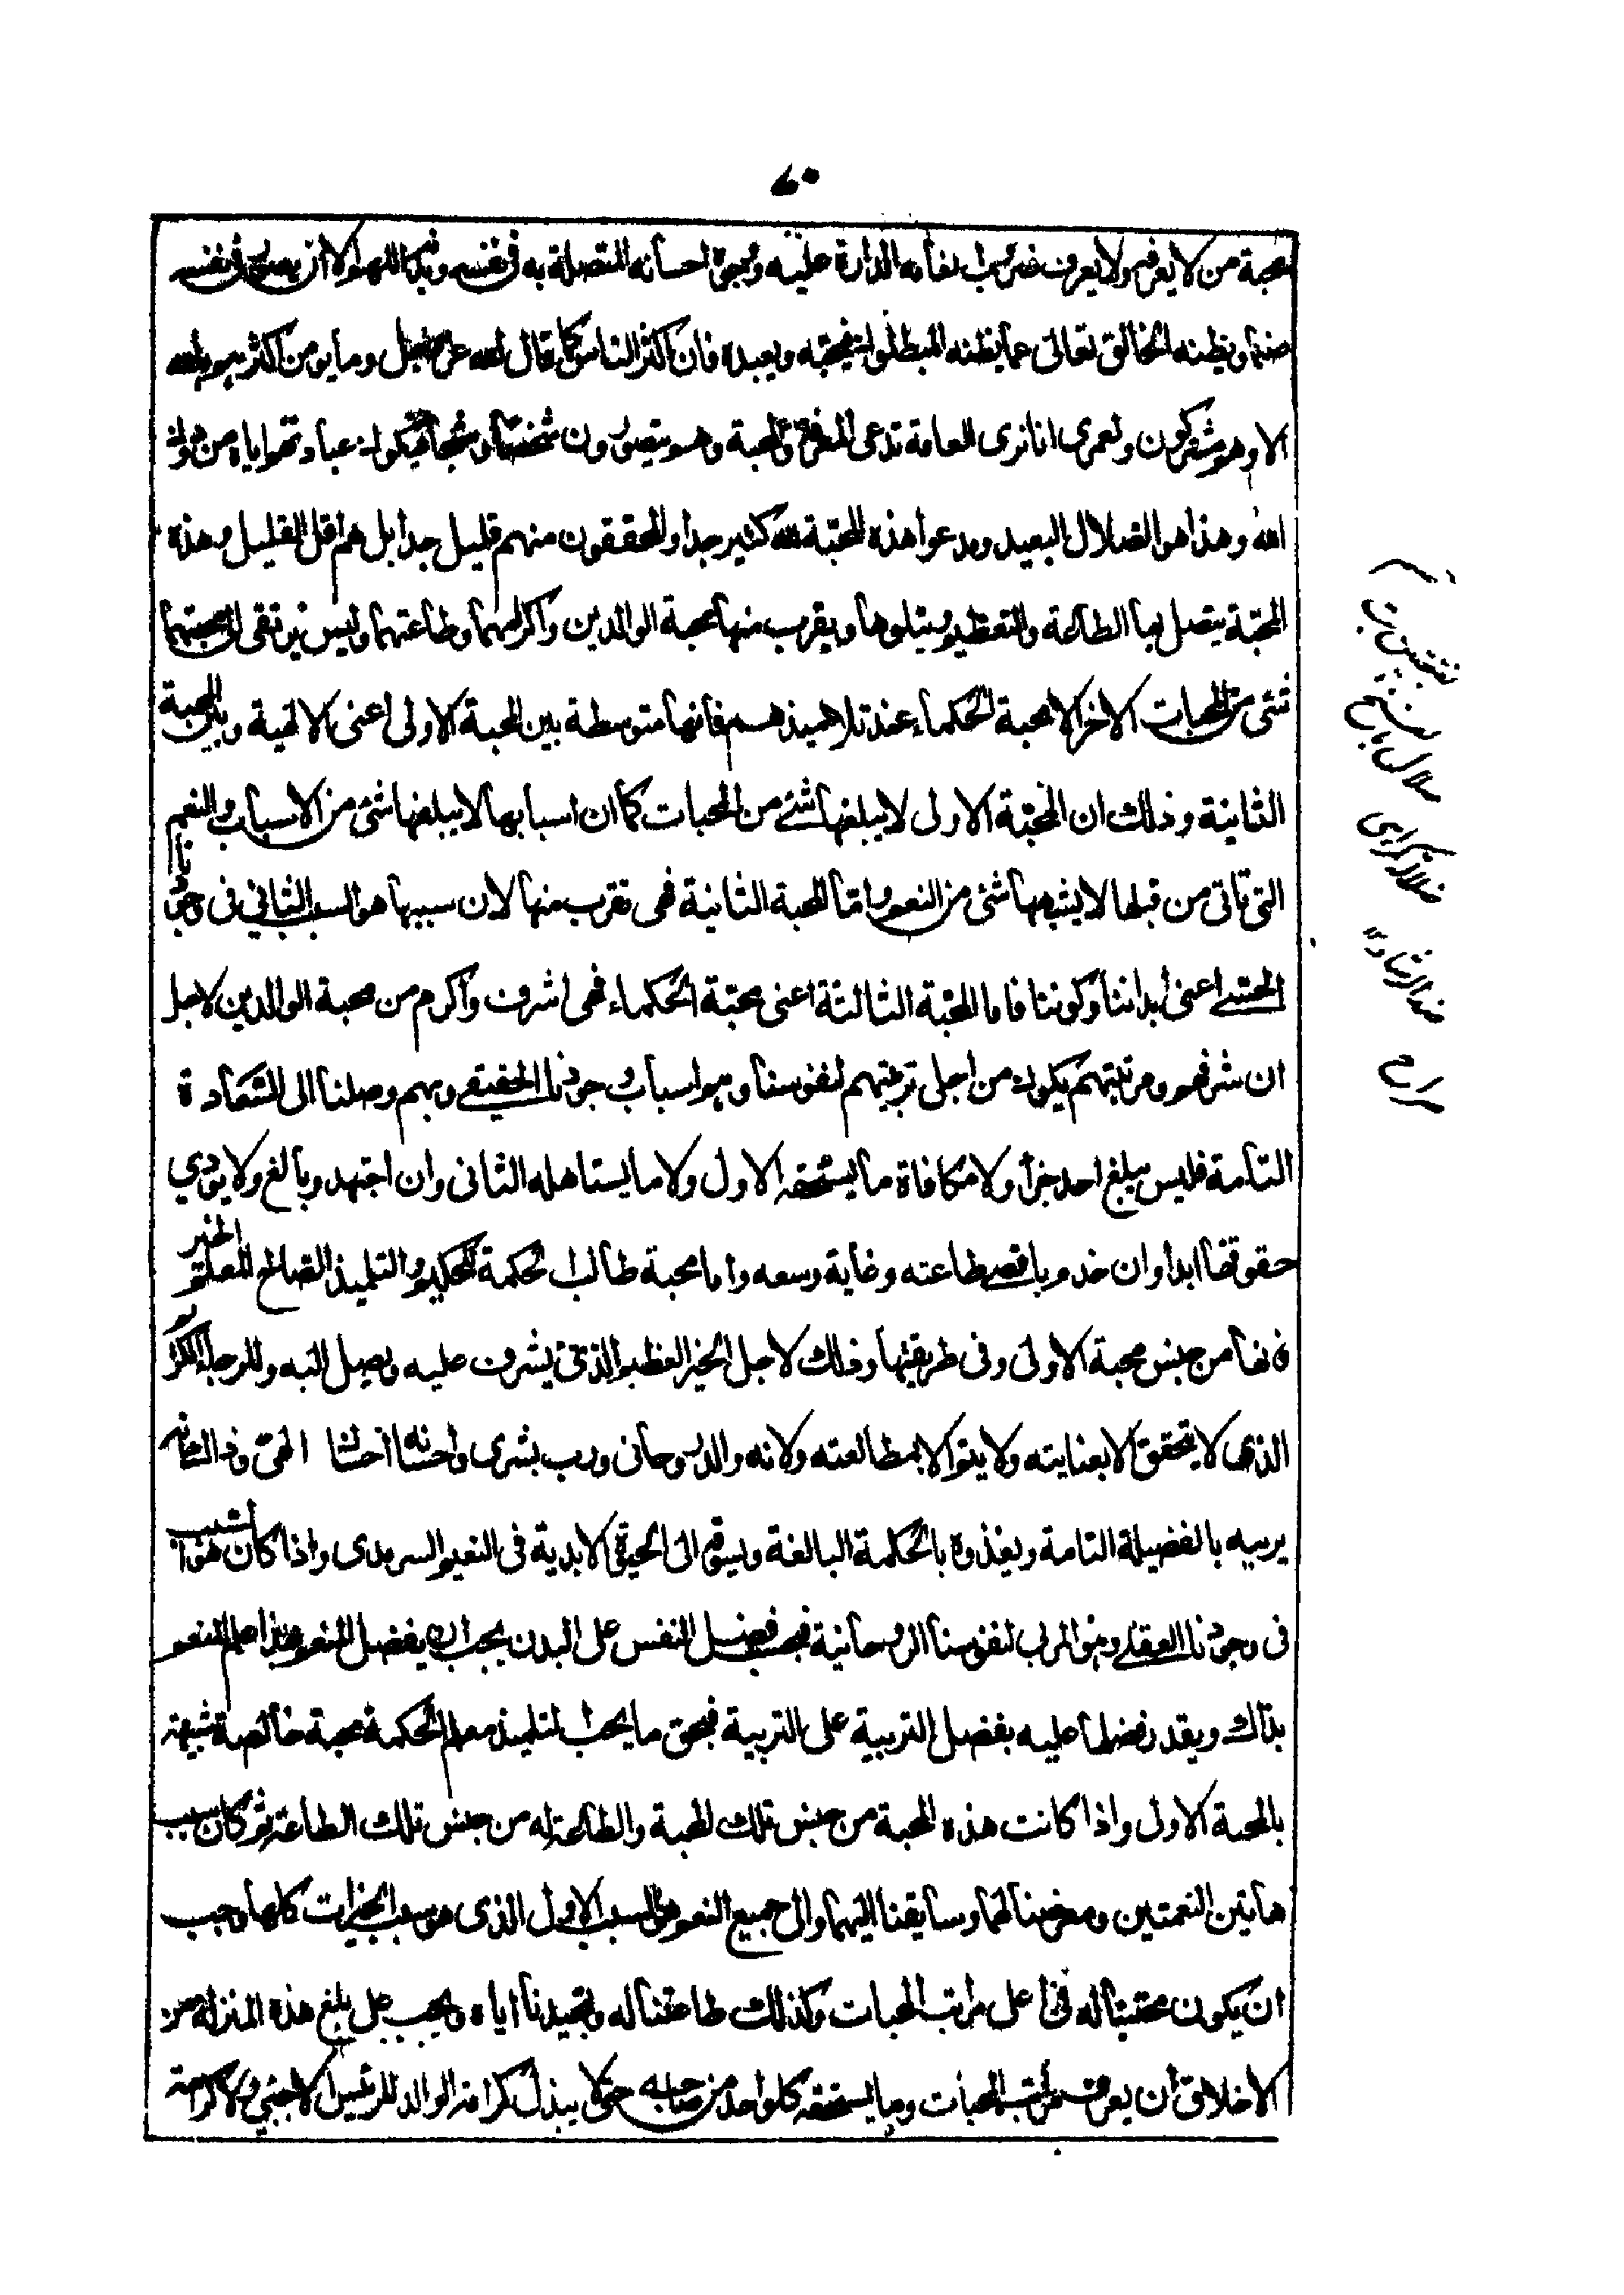 محبة من لا يعرفه ولا يعرف ضروب انعامه الدارة عليه ووجوه احسانه المتصلة به في نفسه وبدنه اللهم الا ان يصور في نفسه
صنما ويظنه الخالق تعالى عما يظنه المبطلون فيحبه ويعبده فان اكثر الناس كما قال الله عز وجل وما يومن اكثرهم بالله
الا وهم مشركون ولعمري انا نرى العامة تدعى المعرفة والمحبة وهم يتصورون شخصا وشبحا فيكون عبادتهم اياه من دون
الله وهذا هو الضلال البعيد ومدعوا هذه المحبة لله كثير جدا والمحققون منهم قليل جدا بل هم اقل القليل وهذه
المحبة يتصل بها الطاعة والتعظيم ويتلوها ويقرب منها محبة الوالدين واكرامهما وطاعتهما وليس يرتقى الى محبتهما
شئ من المحبات الاخر الا محبة الحكماء عند تلاميذهم فانها متوسطة بين المحبة الاولى اعنى الالهية وبين المحبة
الثانية وذلك ان المحبة الاولى لا يبلغها شئ من المحبات كما ان اسبابها لا يبلغها شئ من الاسباب والنعم
التى تاتى من قبلها لا يشبهها شئ من النعم واما المحبة الثانية فهى تقرب منها لان سببها هو السبب الثاني فى وجودنا
الحسى اعنى ابداننا وكوننا فاما المحبة الثالثة اعنى محبة الحكماء فهى اشرف واكرم من محبة الوالدين لاجل
ان شرفهم ومرتبتهم يكون من اجل تربيتهم لنفوسنا وهم اسباب وجودنا الحقيقى وبهم وصلنا الى السعادة
التامة فليس يبلغ احد جزاء ولا مكافاة ما يستحقه الاول ولا ما يستاهله الثانى وان اجتهد وبالغ ولا يودي
حقوقها ابدا وان خدم باقصى طاعته وغاية وسعه واما محبة طالب الحكمة للحكيم والتلميذ الصالح للمعلم الخير
فانها من جنس محبة الاولى وفى طريقتها وذلك لاجل الخير العظيم الذى يشرف عليه ويصل اليه وللرجاء الكريم
الذى لا يتحقق الا بعنايته ولا يتم الا بمطالعته ولانه والد روحانى ورب بشرى واحسانه احسان الهى وذلك انه
يربيه بالفضيلة التامة ويغذوه بالحكمة البالغة ويسوقه الى الحيوة الابدية فى النعيم السرمدى واذا كان هو السبب
فى وجودنا العقلى وهو المربى لنفوسنا الروحانية فبحسب فضل النفس على البدن يجب ان يفضل المنعم بهذا على المنعم
بذاك وبقدر فضلها عليه بفضل التربية على التربية فبحق ما يحب التلميذ معلم الحكمة محبة خالصة شبيهة
بالمحبة الاولى واذا كانت هذه المحبة من جنس تلك المحبة والطاعة له من جنس تلك الطاعة ثم كان سبب
هاتين النعمتين ومعرضنا لهما وسايقنا اليهما والى جميع النعم هو السبب الاول الذى هو سبب الخيرات كلها وجب
ان يكون محبتنا له فى اعلى مراتب المحبات وكذلك طاعتنا له وتمجيدنا اياه ويجب على من بلغ هذه المنزلة من
الاخلاق ان يعرف مراتب المحبات وما يستحقه كل واحد من صاحبه حتى لا يبذل كرامة الوالد للرئيس الاجنبي ولا كرامة